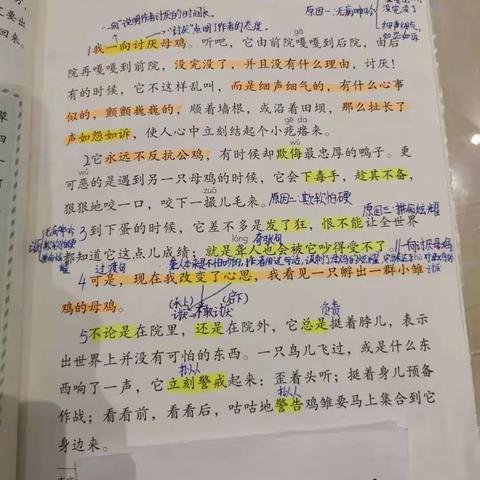 来。
出
回来。
"一向"说明作者讨厌的时间长。
"讨厌"点明了作者的态度。
原因一:无病呻吟
没完没了
细声细气
如怨如诉
1我一向讨厌母鸡。听吧,它由前院嘎嘎到后院,由后
gā
院再嘎嘎到前院,没完没了,并且没有什么理由,讨厌!
有的时候,它不这样乱叫,而是细声细气的,有什么心事
似的,颤颤巍巍的,顺着墙根,或沿着田坝,那么扯长了
声如怨如诉,使人心中立刻结起个小疙瘩来。
gē da
2它永远不反抗公鸡,有时候却欺侮最忠厚的鸭子。更
wǔ
可恶的是遇到另一只母鸡的时候,它会下毒手,趁其不备,
wù
狠狠地咬一口,咬下一撮儿毛来。
zuǒ
原因二:欺软怕硬
原因三:拼命炫耀
3到下蛋的时候,它差不多是发了狂,恨不能让全世界
都知道它这点儿成绩;就是聋人也会被它吵得受不了。
lóng
夸张句
一向讨厌母鸡
过渡句
4可是,现在我改变了心思,我看见一只孵出一群小雏
鸡的母鸡。
(承上)
(启下)
讨厌
不敢讨厌
负责
5不论是在院里,还是在院外,它总是挺着脖儿,表示
出世界上并没有可怕的东西。一只鸟儿飞过,或是什么东
西响了一声,它立刻警戒起来:歪着头听;挺着身儿预备
拟人
作战;看看前,看看后,咕咕地警告鸡雏要马上集合到它
拟人
身边来。